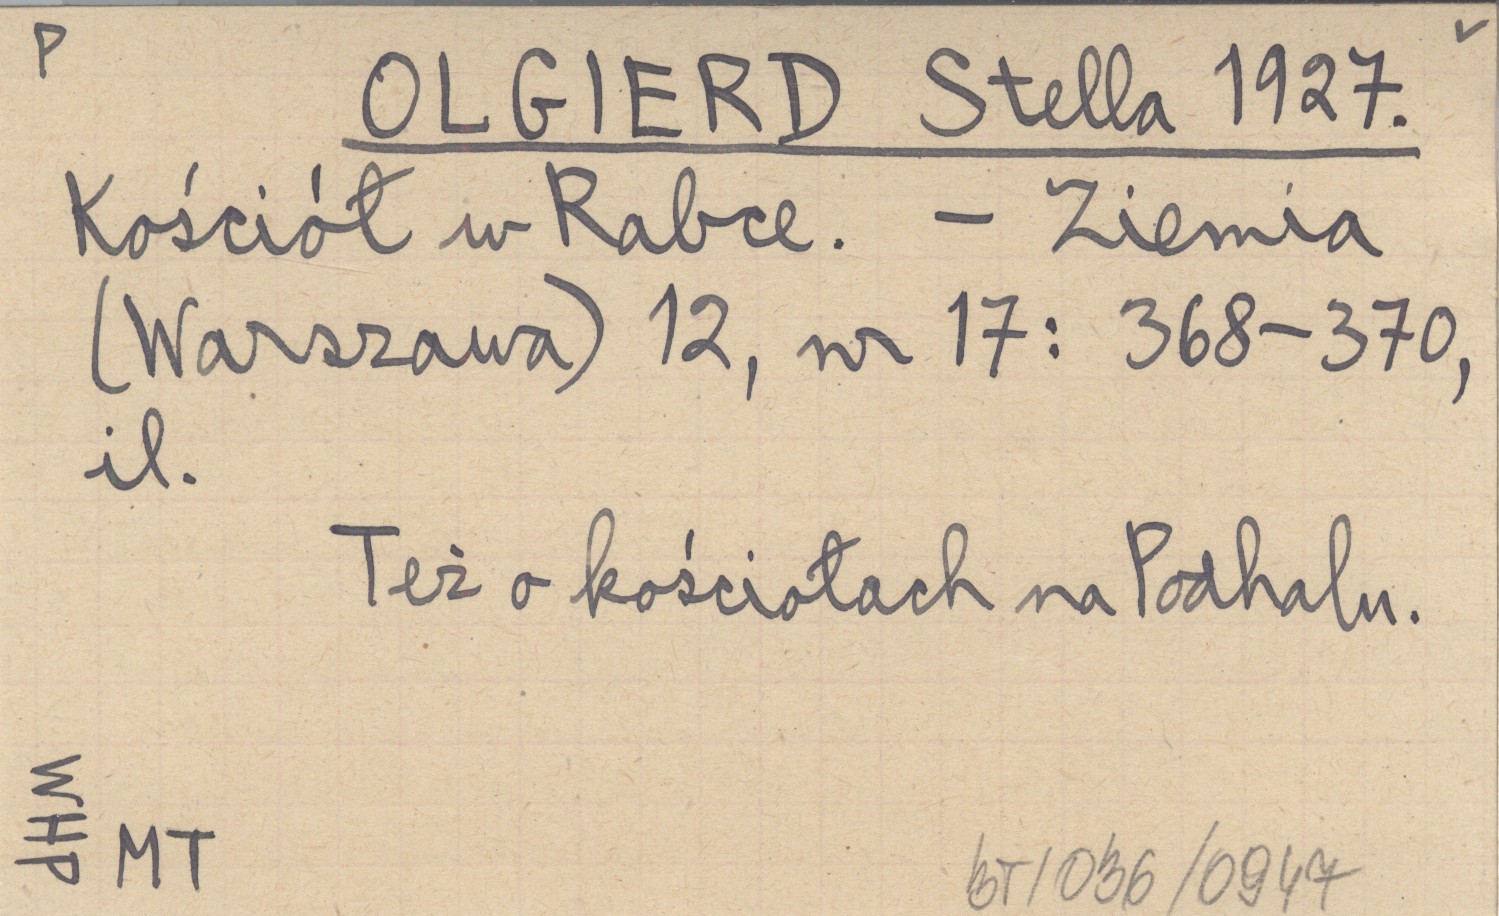 P
OLGIERD Stella 1927.
Kościół w Rabce. – Ziemia
(Warszawa) 12, nr 17: 368–370,
il.
Też o kościołach na Podhalu.
WHP
MT
BT/036/0947